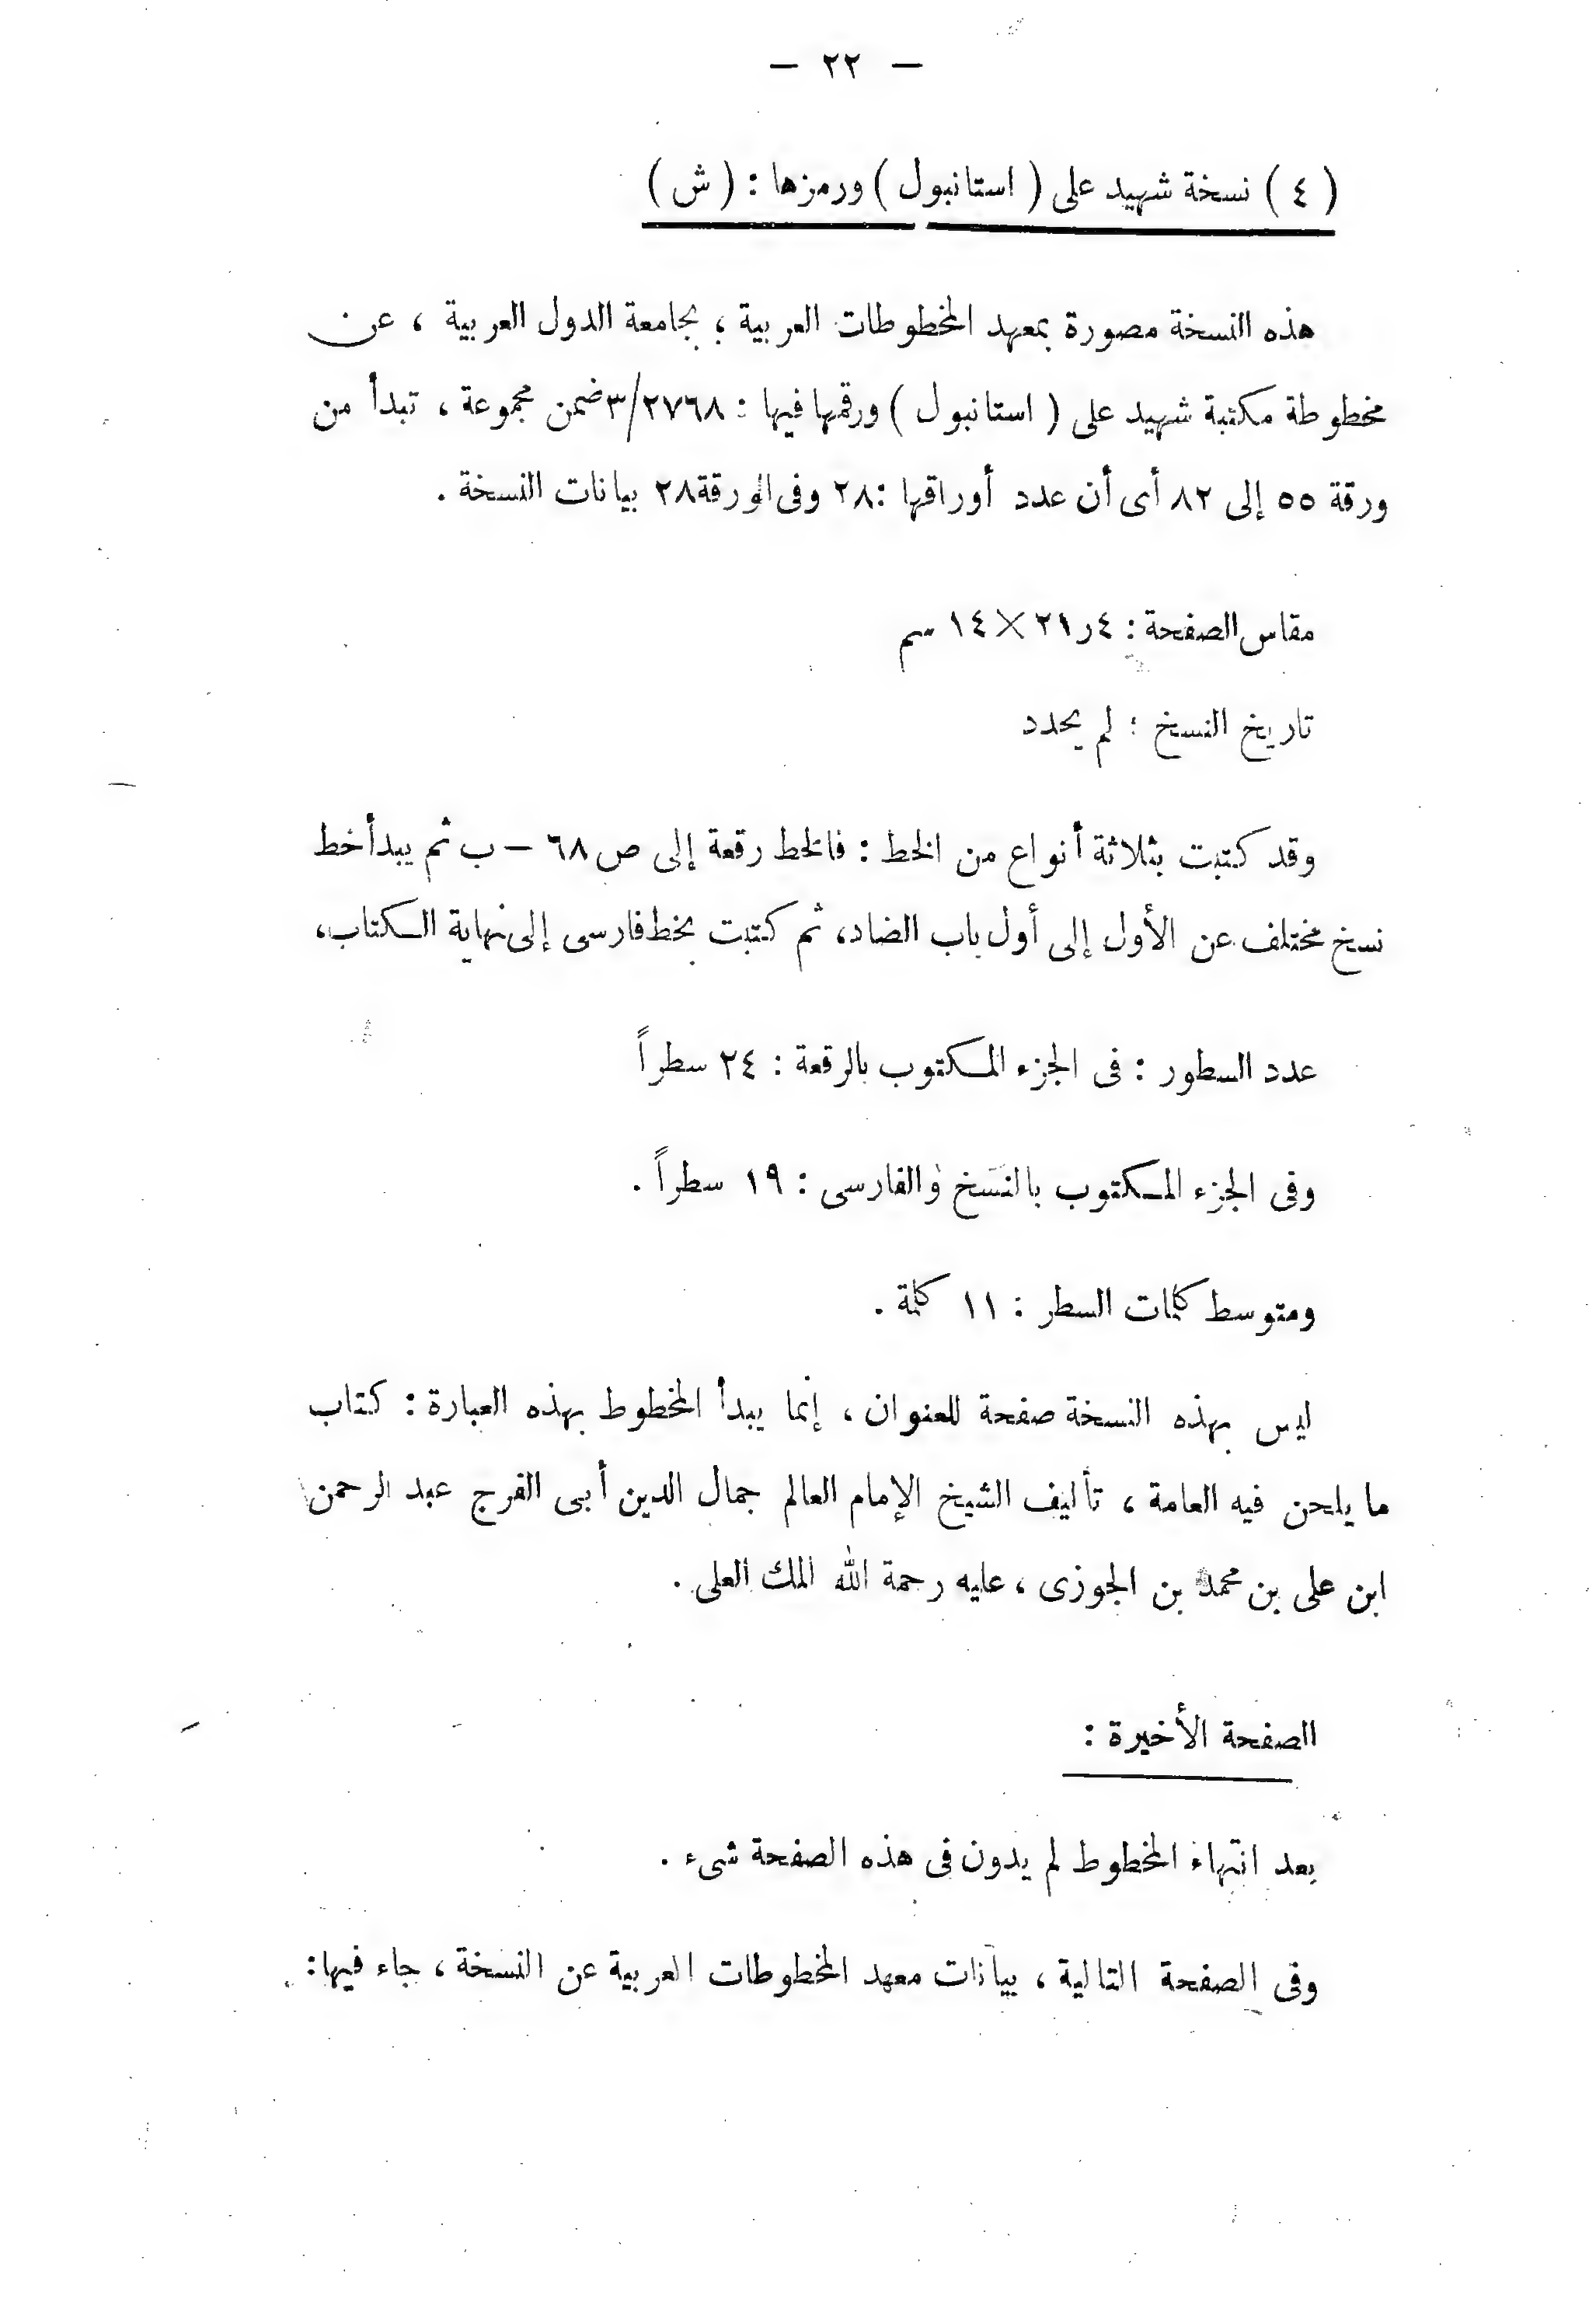 — ٢٢ —
( ٤ ) نسخة شهيد على ( استانبول ) ورمزها : ( ش )
هذه النسخة مصورة بمعهد المخطوطات العربية ، بجامعة الدول العربية ، عن
مخطوطة مكتبة شهيد على ( استانبول ) ورقمها فيها : ٣/٢٧٦٨ ضمن مجموعة ، تبدأ من
ورقة ٥٥ إلى ٨٢ أى أن عدد أوراقها : ٢٨ وفى الورقة ٢٨ بيانات النسخة .
مقاس الصفحة : ٤ر٢١ × ١٤ سم
تاريخ النسخ : لم يحدد
وقد كتبت بثلاثة أنواع من الخط : فالخط رقعة إلى ص ٦٨ — ب ثم يبدأ خط
نسخ مختلف عن الأول إلى أول باب الضاد، ثم كتبت بخط فارسى إلى نهاية الكتاب،
عدد السطور : فى الجزء المكتوب بالرقعة : ٢٤ سطراً
وفى الجزء المكتوب بالنسخ والفارسى : ١٩ سطراً .
ومتوسط كلمات السطر : ١١ كلمة .
ليس بهذه النسخة صفحة للعنوان ، إنما يبدأ المخطوط بهذه العبارة : كتاب
ما يلحن فيه العامة ، تأليف الشيخ الإمام العالم جمال الدين أبى الفرج عبد الرحمن
ابن على بن محمد بن الجوزى ، عليه رحمة الله الملك العلى .
الصفحة الأخيرة :
بعد انتهاء المخطوط لم يدون فى هذه الصفحة شىء .
وفى الصفحة التالية ، بيانات معهد المخطوطات العربية عن النسخة ، جاء فيها :